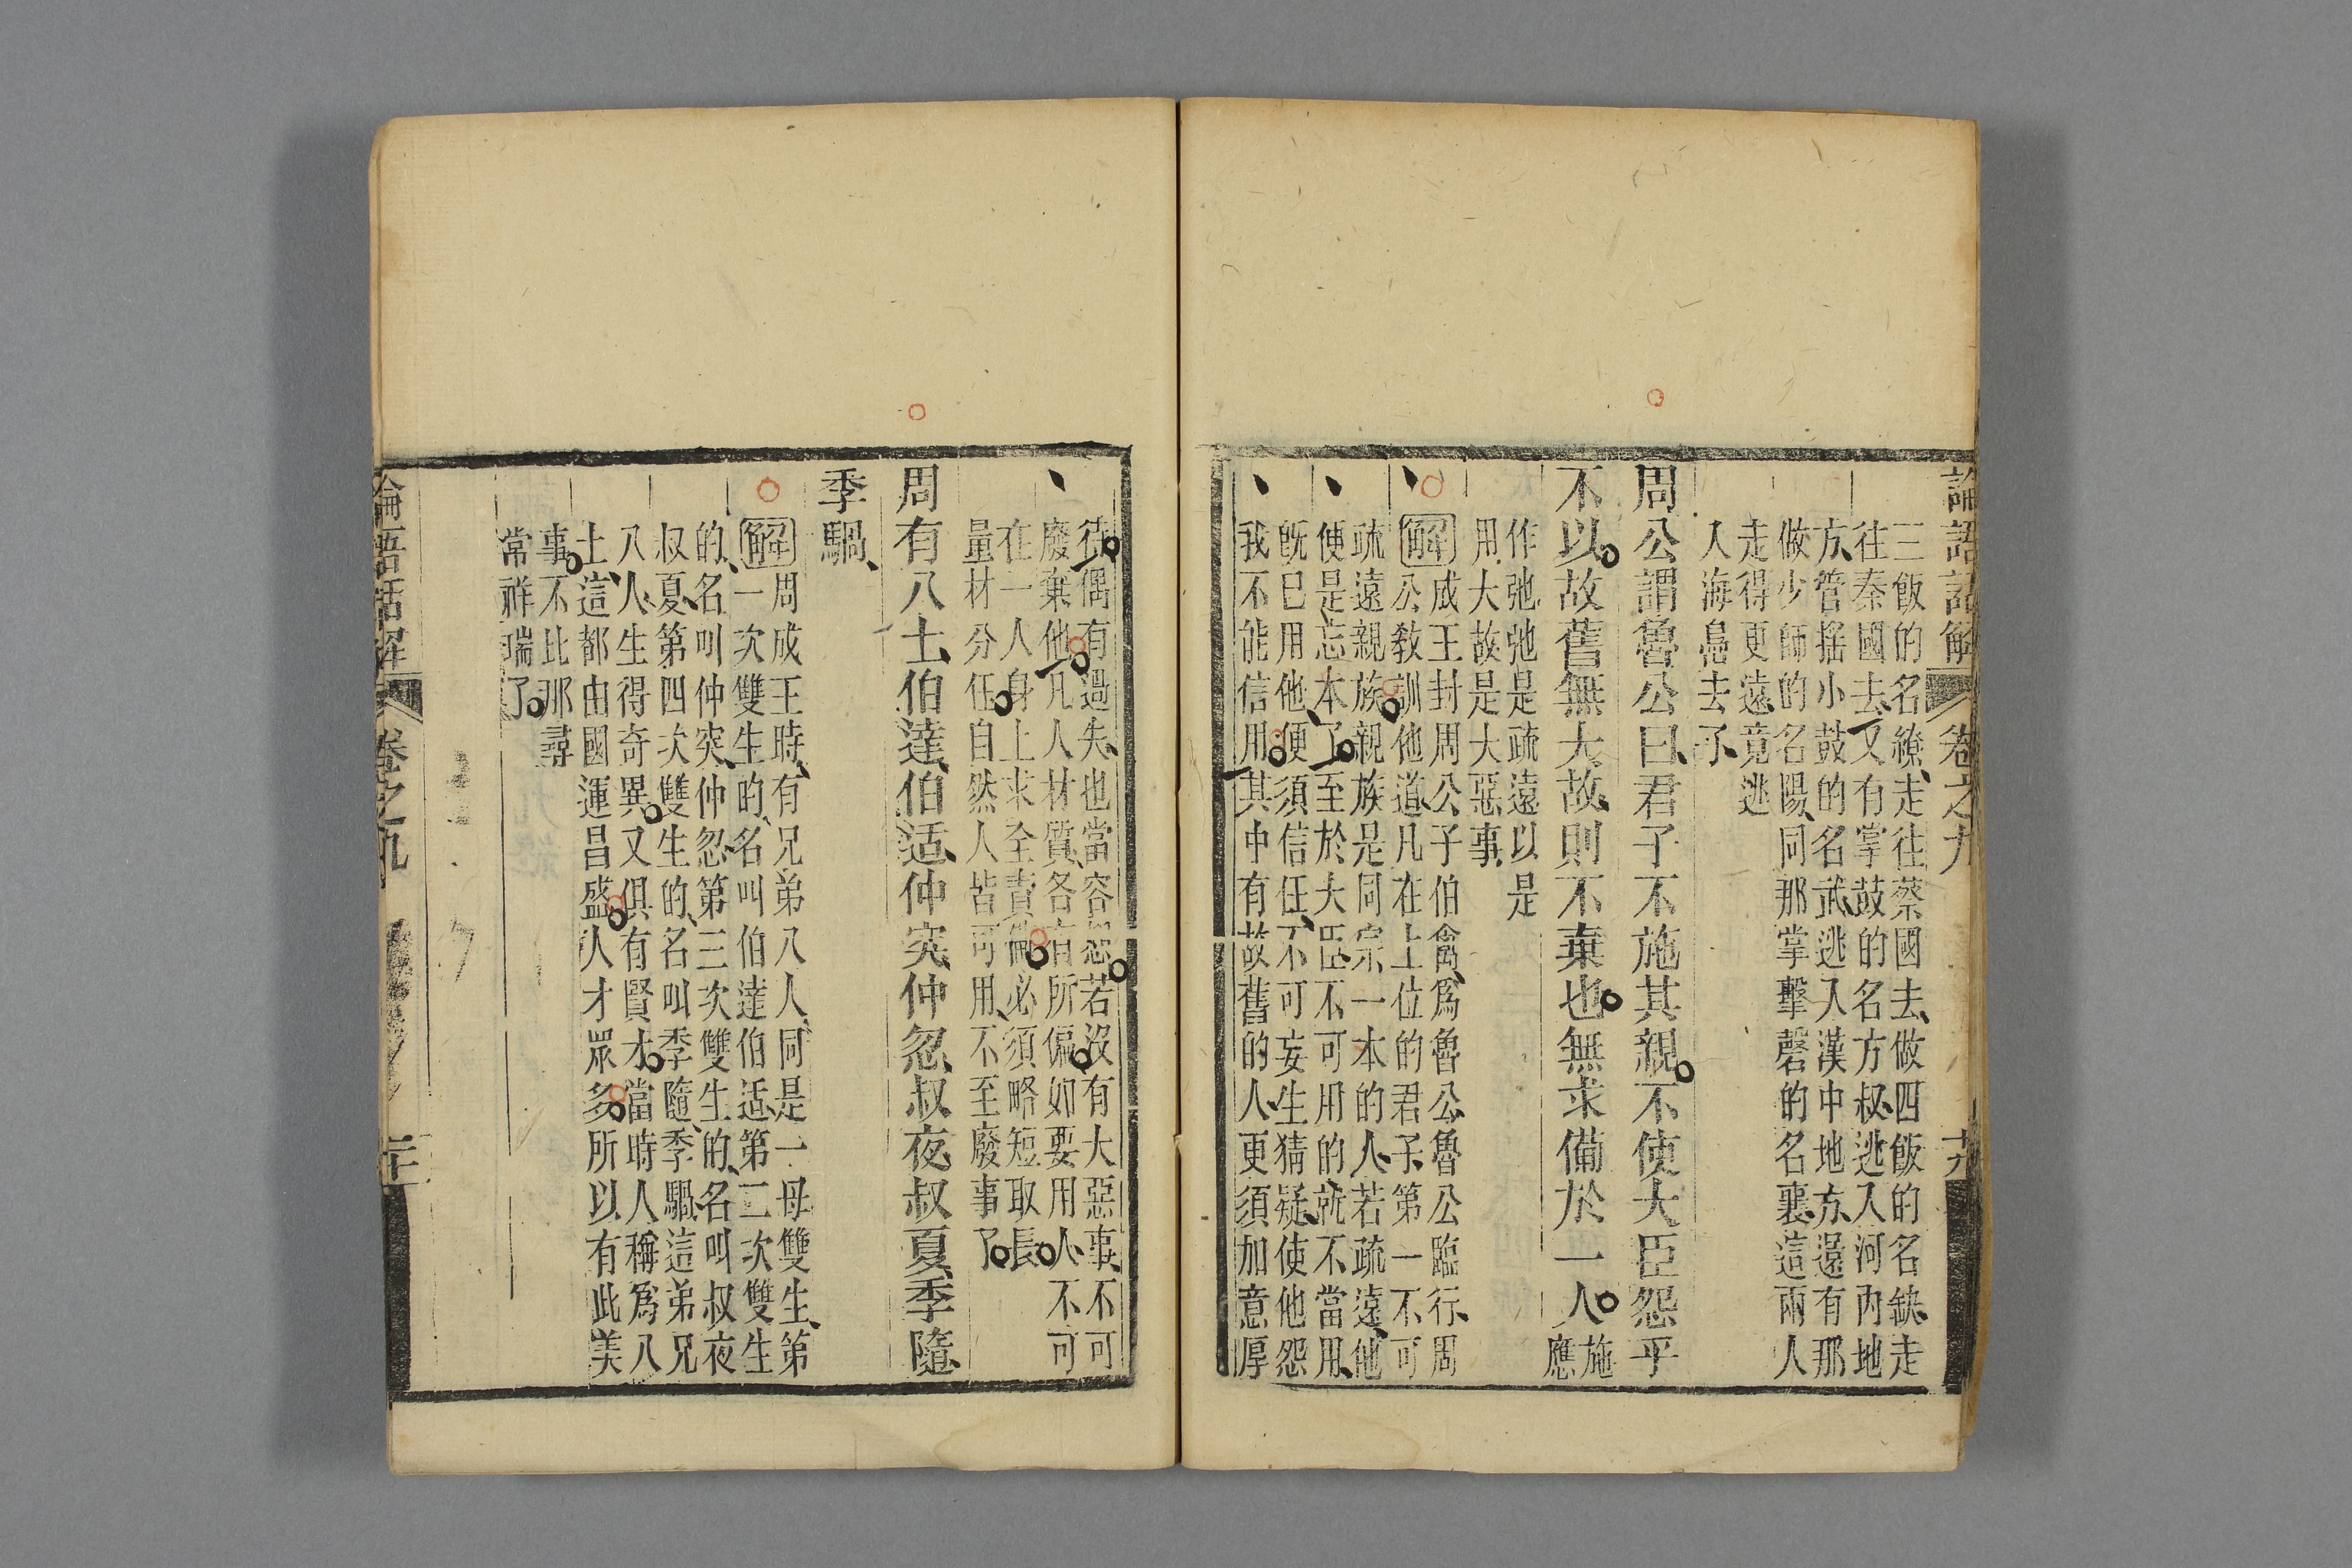 論語話解 卷之九 十九
三飯的名繚、走往蔡國去、做四飯的名缺、走
往秦國去、又有掌鼓的名方叔、逃入河內地
方、管搖小鼓的名武、逃入漢中地方、還有那
做少師的名陽、同那掌擊磬的名襄、這兩人
走得更遠、竟逃
人海島去了、
周公謂魯公曰、君子不施其親。不使大臣怨乎
不以。故舊無大故、則不棄也。無求備於一人。施應
作弛弛是疏遠以是
用大故是大惡事、
解 成王封周公子伯禽、爲魯公、魯公臨行、周
公教訓他道、凡在上位的君子、第一不可
疏遠親族親族是同宗一本的人、若疏遠他
便是忘本了。至於大臣、不可用的、就不當用、
既已用他、便須信任、不可妄生猜疑、使他怨
我不能信用、其中有故舊的人、更須加意厚
待。偶有過失、也當容恕。若沒有大惡事、不可
廢棄他。凡人材質、各有所偏。如要用人、不可
在一人身上求全責備。必須略短取長。
量材分任。自然人皆可用、不至廢事了。
周有八士、伯達、伯适、仲突、仲忽、叔夜、叔夏、季隨、
季騧、
解 周成王時、有兄弟八人、同是一母雙生、第
一次雙生的、名叫伯達伯适、第二次雙生
的、名叫仲突、仲忽、第三次雙生的、名叫叔夜
叔夏、第四次雙生的、名叫季隨、季騧、這弟兄
八人、生得奇異。又俱有賢才。當時人稱爲八
士、這都由國運昌盛。人才眾多。所以有此美
事。不比那尋
常祥瑞了。
論語話解 卷之九 二十